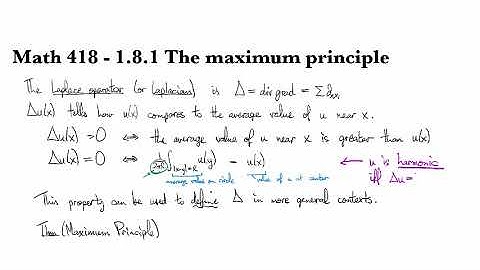 Math 418 - 1.8.1 The maximum principle
The Laplace operator (or Laplacian) is Δ = div grad = Σ ∂xixi
Δu(x) tells how u(x) compares to the average value of u near x.
Δu(x) > 0 ⇔ the average value of u near x is greater than u(x)
Δu(x) = 0 ⇔ 1/2πR ∫|x-y|=R u(y) - u(x) ← u is harmonic
average value on circle value of u at center iff Δu=
This property can be used to define Δ in more general contexts.
Thm (Maximum Principle)